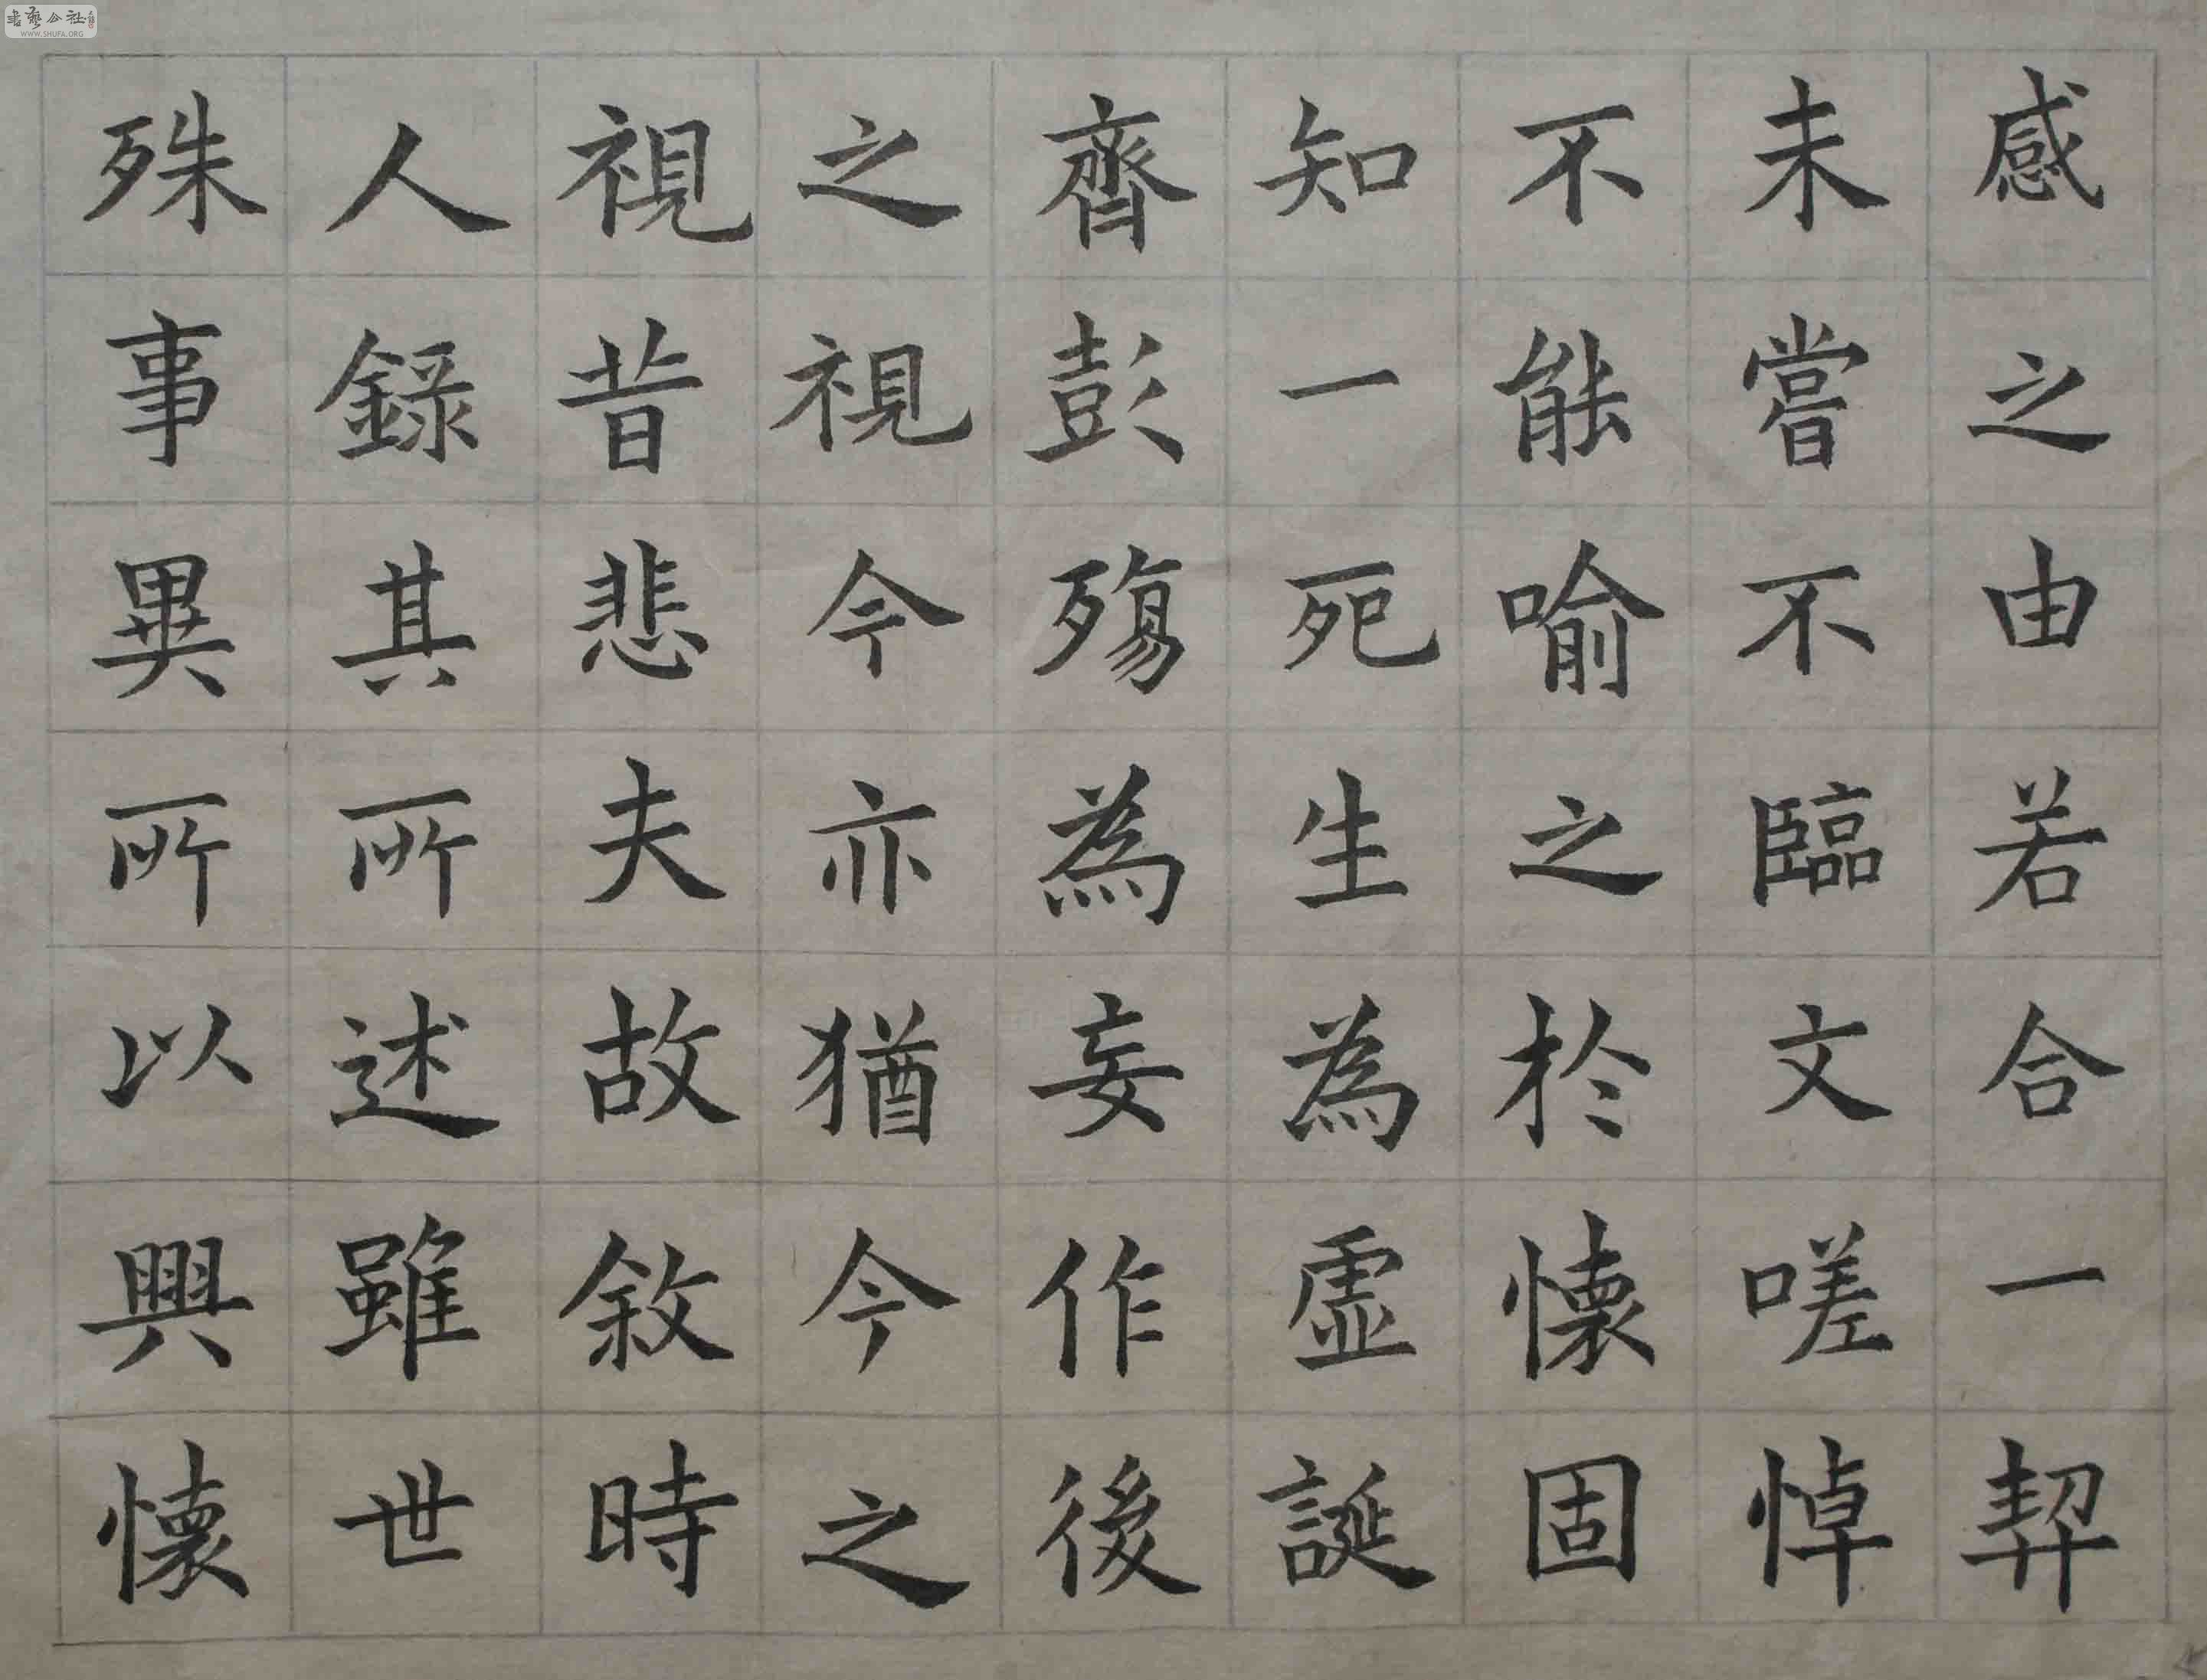 感之由若合一契
未嘗不臨文嗟悼
不能喻之於懷固
知一死生為虛誕
齊彭殤為妄作後
之視今亦猶今之
視昔悲夫故敘時
人錄其所述雖世
殊事異所以興懷
書藝公社
WWW.SHUFA.ORG